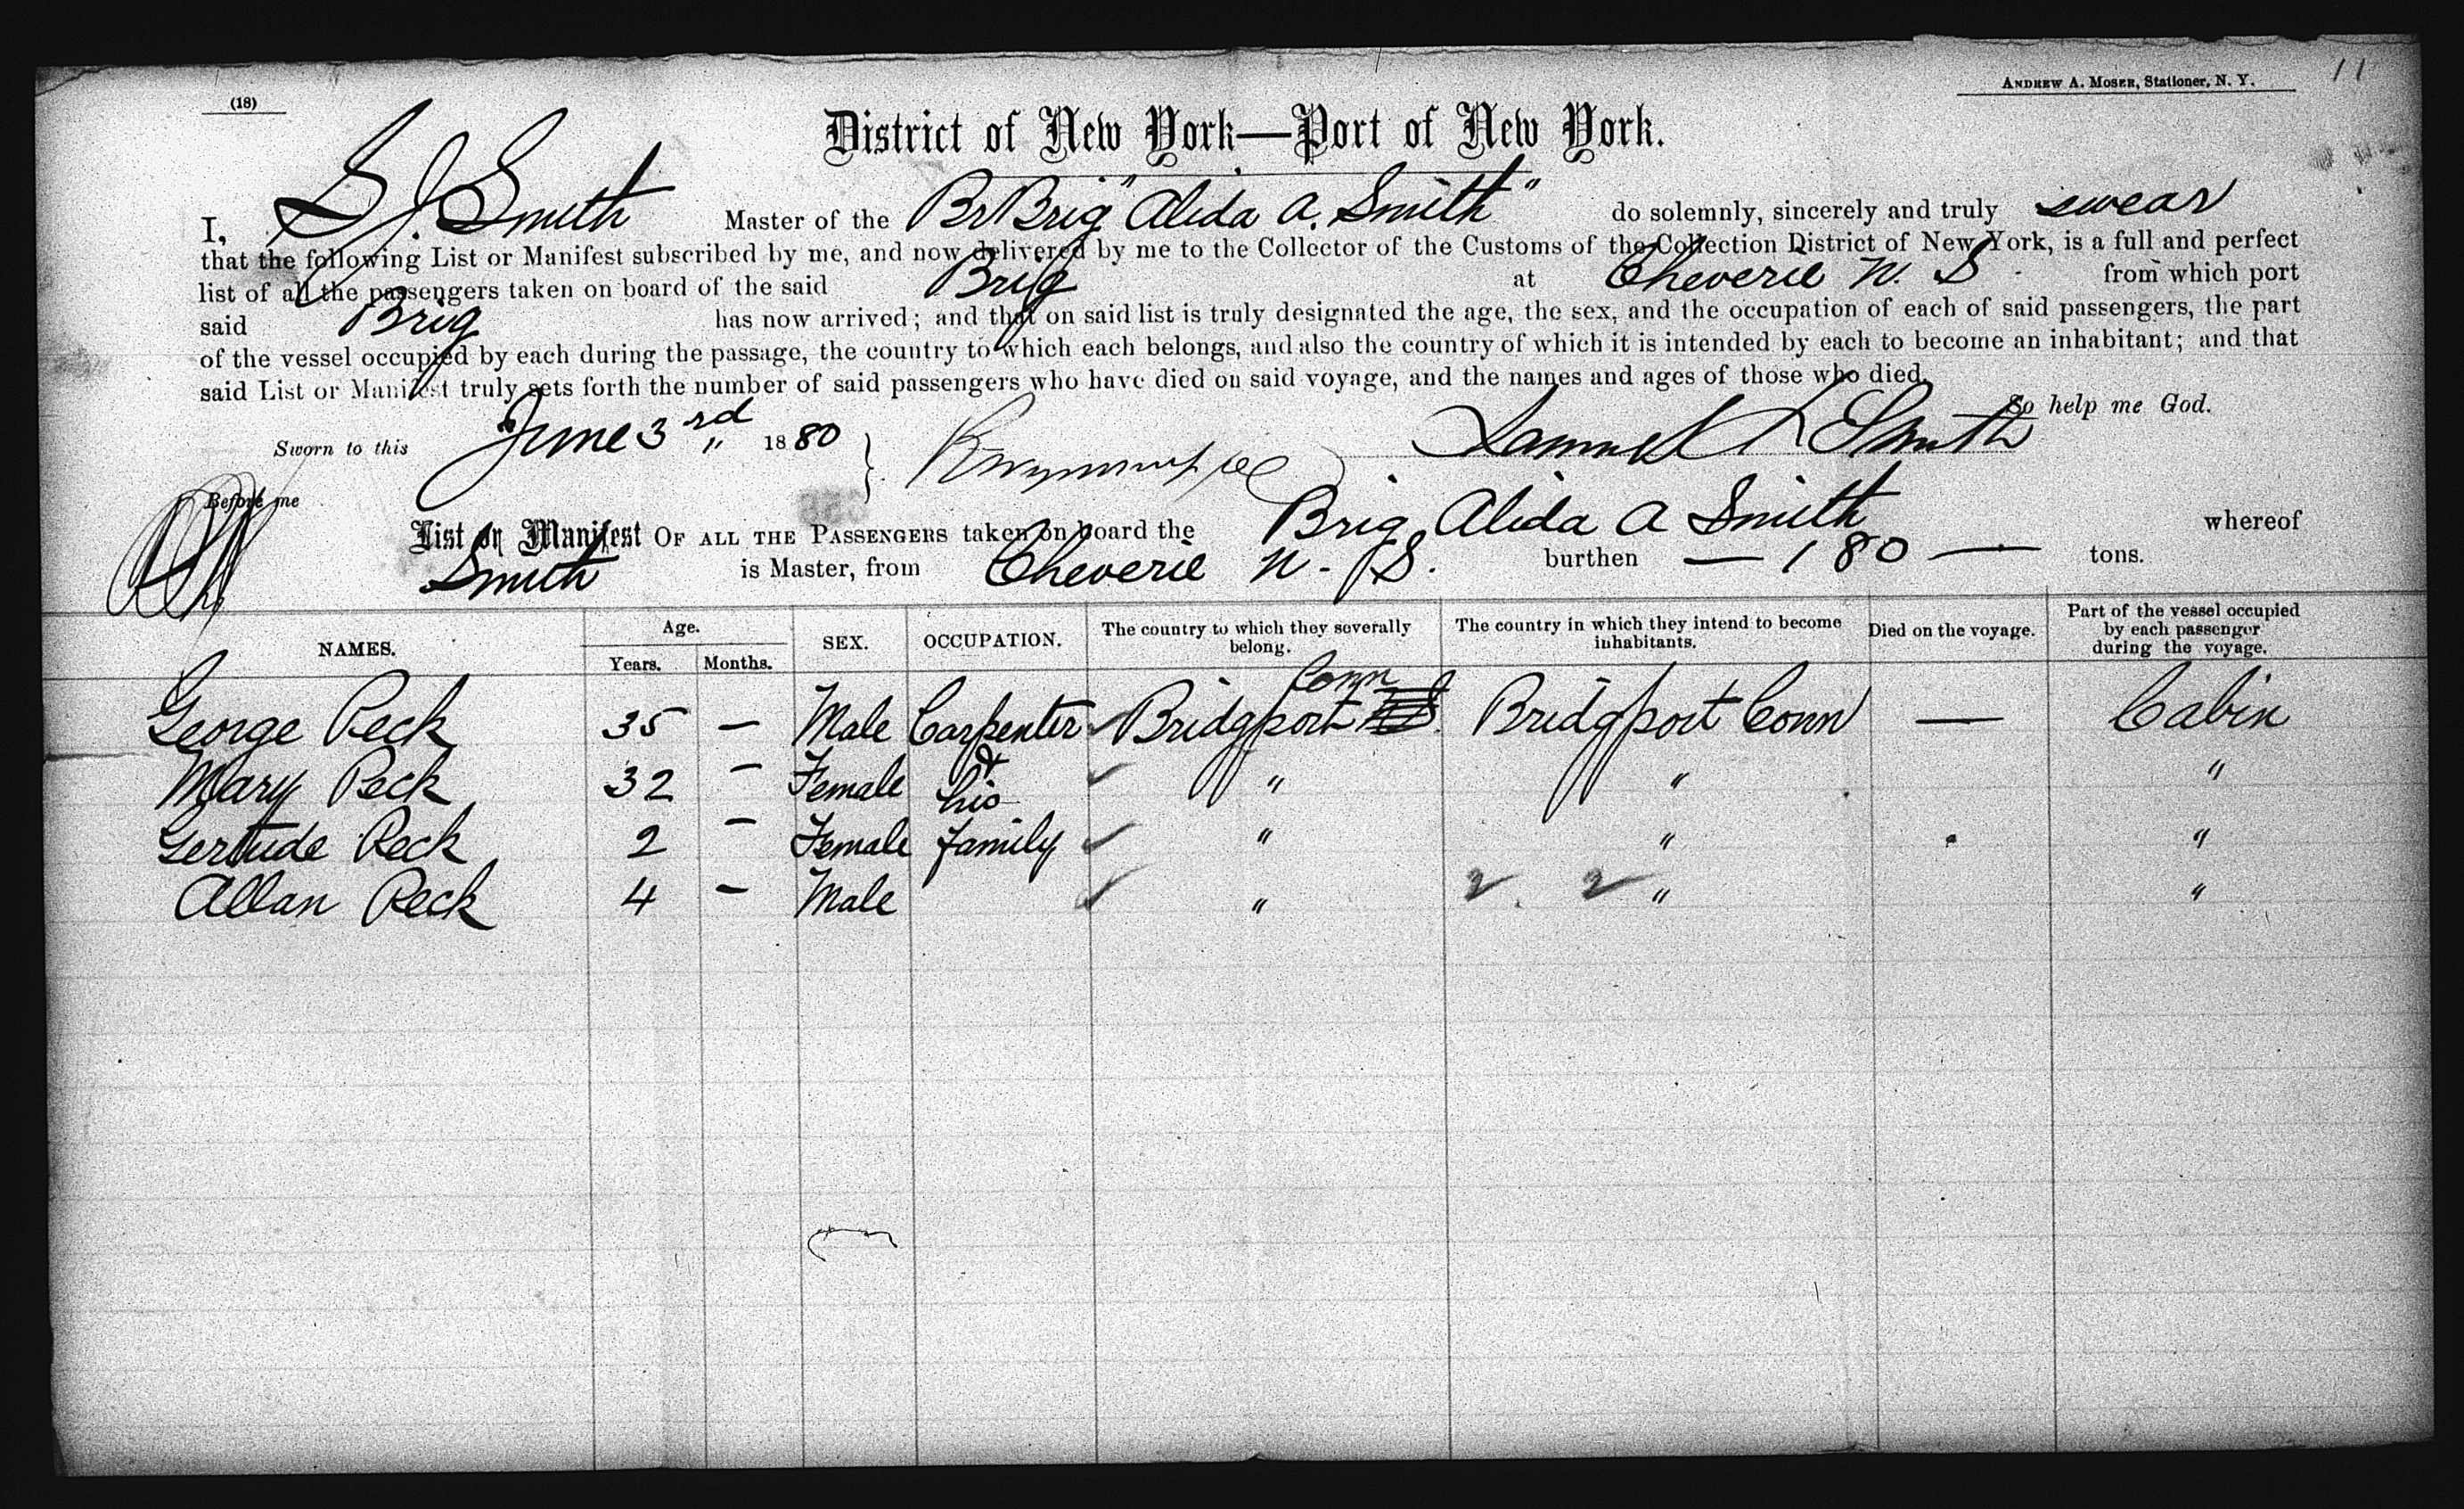 (18)
ANDREW A. MOSER, Stationer, N. Y.
11
District of New York—Port of New York.
I, S J. Smith Master of the Br Brig "Alida A. Smith" do solemnly, sincerely and truly swear
that the following List or Manifest subscribed by me, and now delivered by me to the Collector of the Customs of the Collection District of New York, is a full and perfect
list of all the passengers taken on board of the said Brig at Cheverie N. S from which port
said Brig has now arrived; and that on said list is truly designated the age, the sex, and the occupation of each of said passengers, the part
of the vessel occupied by each during the passage, the country to which each belongs, and also the country of which it is intended by each to become an inhabitant; and that
said List or Manifest truly sets forth the number of said passengers who have died on said voyage, and the names and ages of those who died.
So help me God.
Sworn to this June 3rd " 1880 Samuel Smith
Before me
List or Manifest OF ALL THE PASSENGERS taken on board the Brig Alida A Smith whereof
Smith is Master, from Cheverie N. S. burthen — 180 — tons.
NAMES. Age. Years. Months. SEX. OCCUPATION. The country to which they severally belong. The country in which they intend to become inhabitants. Died on the voyage. Part of the vessel occupied by each passenger during the voyage.
George Peck 35 — Male Carpenter Bridgport Conn Bridgport Conn — Cabin
Mary Peck 32 — Female & his " " "
Gertude Peck 2 — Female family " " "
Allan Peck 4 — Male " 2 2 " "